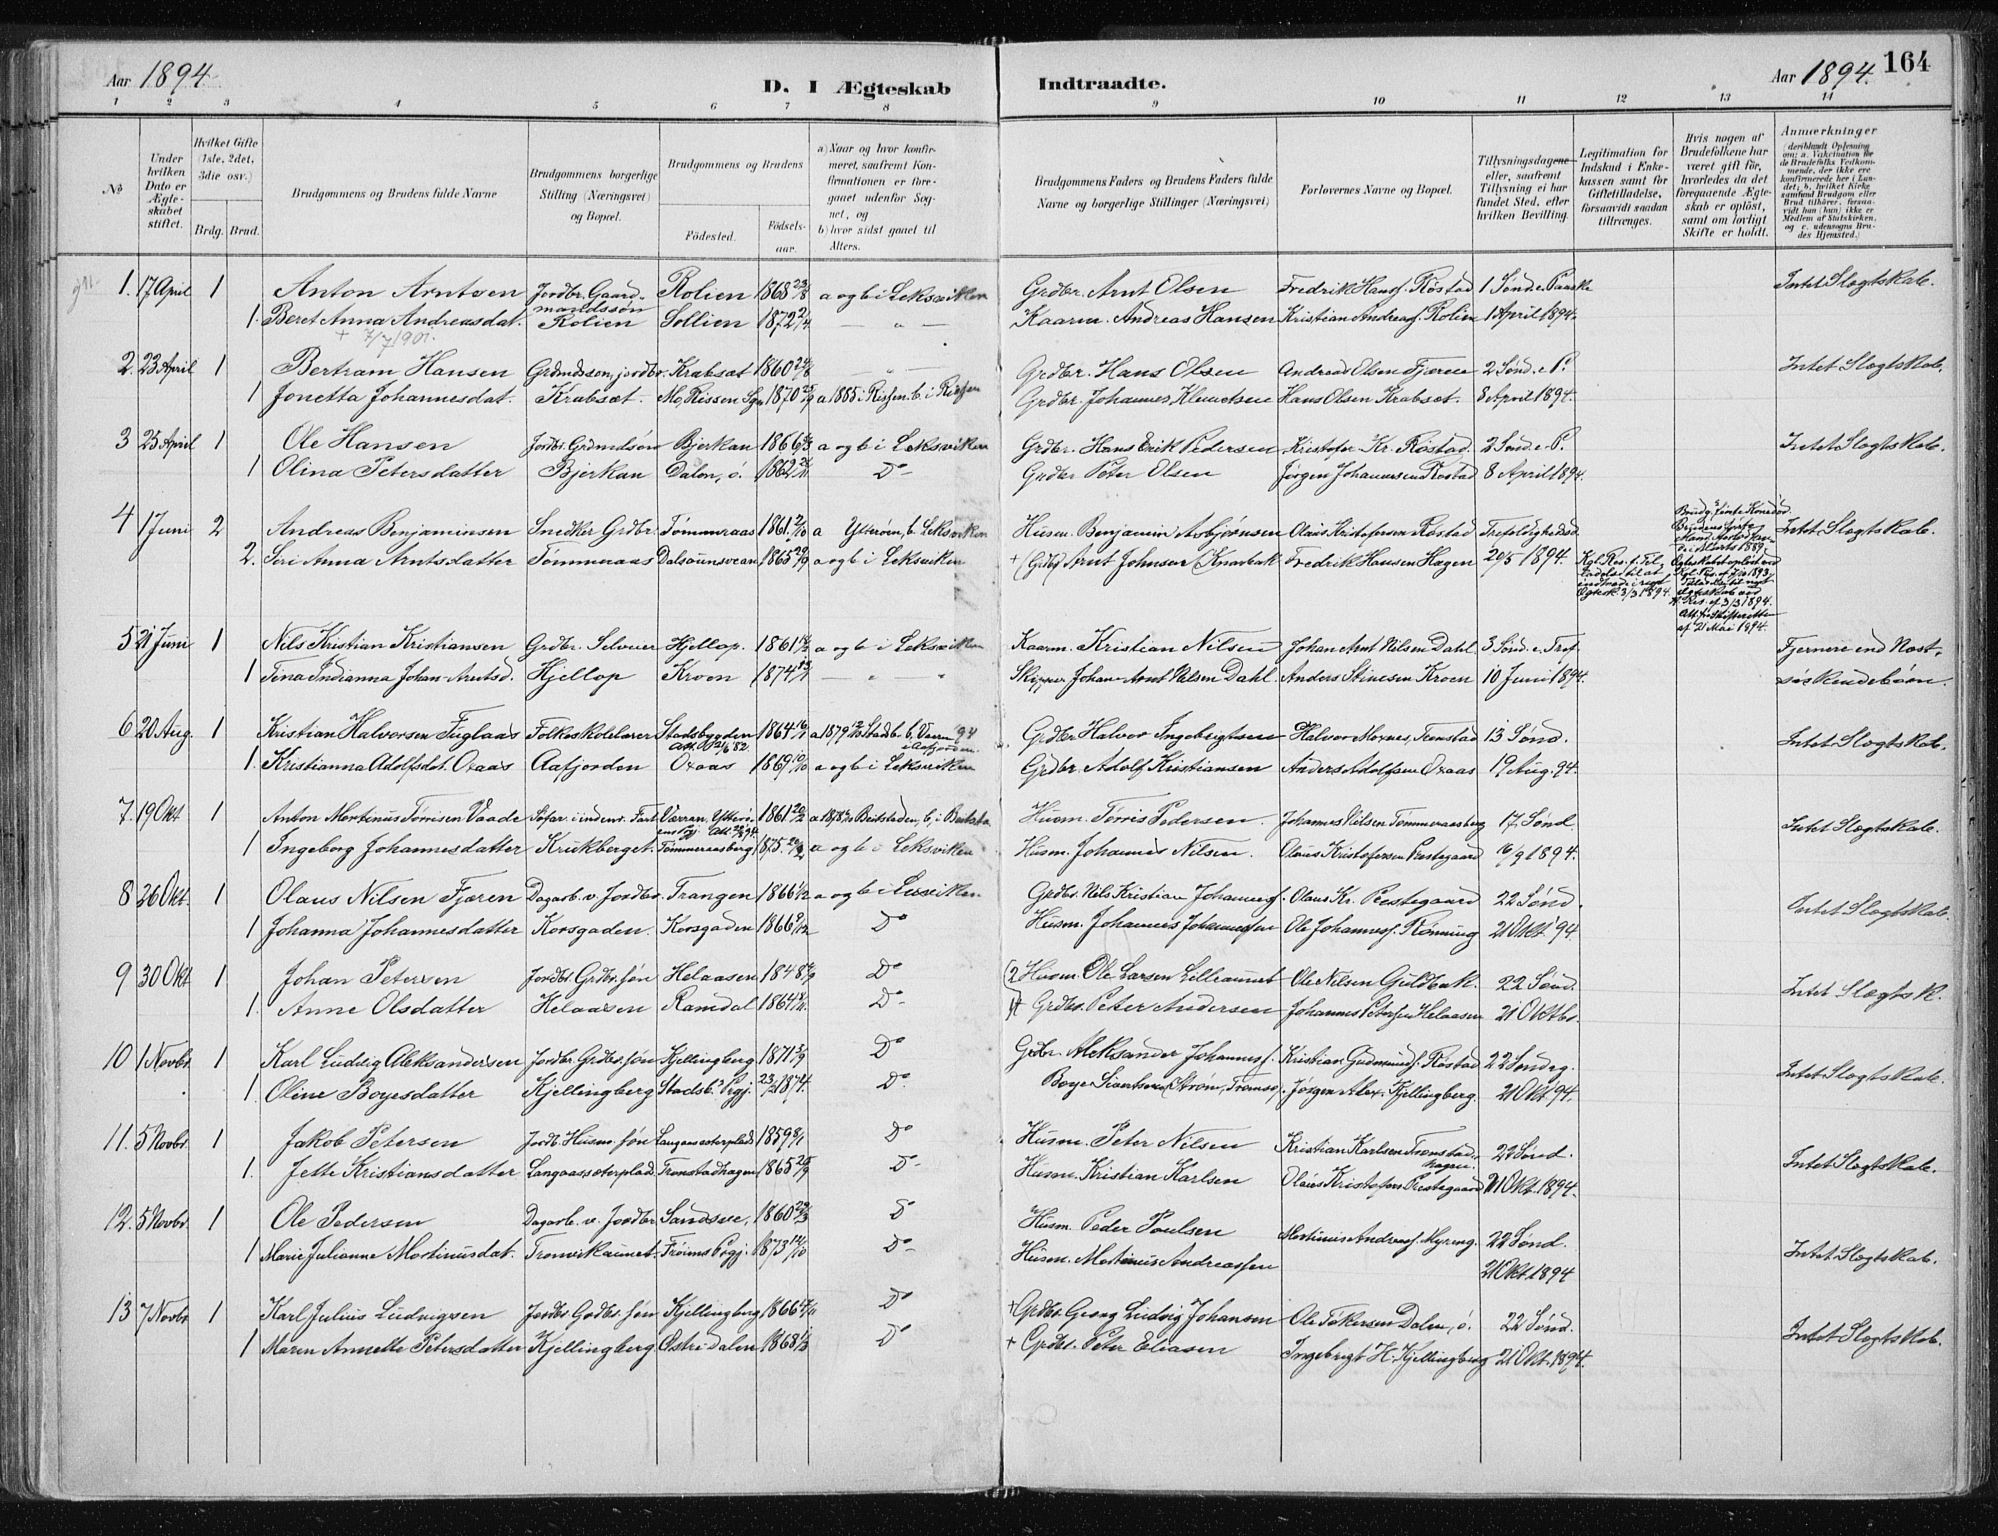 Aar 1894.
D. I Ægteskab
Indtraadte.
Aar 1894.
164
1 2 3 4 5 6 7 8 9 10 11 12 13 14
No
Under hvilken Dato er Ægteskabet stiftet.
Hvilket Gifte (1ste, 2det, 3die osv.)
Brdg. Brud.
Brudgommens og Brudens fulde Navne
Brudgommens borgerlige Stilling (Næringsvei) og Bopæl.
Brudgommens og Brudens
Födested.
Födselsaar.
a) Naar og hvor konfirmeret, saafremt Konfirmationen er foregaaet udenfor Sognet, og
b) hvor sidst gaaet til Alters.
Brudgommens Faders og Brudens Faders fulde Navne og borgerlige Stillinger (Næringsvei)
Forlovernes Navne og Bopæl.
Tillysningsdagene eller, saafremt Tillysning ei har fundet Sted, efter hvilken Bevilling.
Legitimation for Indskud i Enkekassen samt for Giftetilladelse, forsaavidt saadan tiltrænges.
Hvis nogen af Brudefolkene har været gift för, hvorledes da det foregaaende Ægteskab er oplöst, samt om lovligt Skifte er holdt.
Anmærkninger
1. 17 April 1 Anton Arntsen Jordbr. Gaardmandssøn Rolien 1868 23/8 a og b i Leksviken Grdbr. Arnt Olsen Fredrik Hansf. Røstad 1 Sønd e. Paaske Intet Slægtskab.
1. Beret Anna Andreasdat. Rolien Sollien 1872 2/4 — " — Kaarm. Andreas Hansen Kristian Andreasf. Rolien 1 April 1894.
+ 7/7 1901.
2. 23 April 1 Bertram Hansen Grdmdssøn, jordbr. Krabsæt 1860 24/8 — " — Grdbr. Hans Olsen Andreas Olsen Fjæren 2 Sønd. e. P. Intet Slægtskab.
1 Jonetta Johannesdat. Krabsæt. Mo, Rissen 1870 a 1885 i Rissen. b. i Rissen Grdbr. Johannes Klemetsen Hans Olsen Krabsæt. 8 April 1894.
3 25 April 1 Ole Hansen Jordbr. Grdmdsøn Bjerkan 1866 a og b i Leksviken Grdbr. Hans Erik Pedersen Kristofer Kr. Røstad. 2 Sønd. e. P. Intet Slægtskab.
1 Olina Petersdatter Bjerkan Dalen, ö. 1862 Do Grdbr Peter Olsen Jørgen Johannesen Røstad 8 April 1894.
4 1 Juni 2 Andreas Benjaminsen Snedker Grdbr. Tømmeraas 1861 a Ytterøen, b. Leksviken Husm. Benjamin Asbjørnsen Olaus Kristofersen Røstad Trefoldighedsd. Intet Slægtskab.
2. Seri Anna Arntsdatter Tømmeraas 1865 29/9 a og b i Leksviken + (Grdbr) Arnt Johnsen (Knavbak Fredrik Hansen Hagen 20/5 1894.
Kgl. Res. f. Tilladelse til at indtræde i nyt Ægtesk. 3/3 1894.
5 21 Juni 1 Nils Kristian Kristiansen Grdbr. Selveier Hjellop. 1861 a og b i Leksviken Kaarm. Kristian Nilsen Johan Arnt Nilsen Dahl 3 Sønd. e. Tref. Fjernere end Næst-
1 Tina Indianna Johan-Arntsd. Hjellop Kroen 1874 — " — " Skipper Johan Arnt Nilsen Dahl. Anders Stinesen Kroen 10 Juni 1894. søskendebørn.
6 20 Aug. 1 Kristian Halvorsen Fuglaas Folkeskolelærer Stadsbygden 1864 Grdbr. Halvor Ingebrigtsen Halvor Moxnes, Tronstad 13 Sønd. Intet Slægtskab.
1. Kristianna Adolfsdat. Oxaas Aafjorden Oxaas 1869 10/10 a og b i Leksviken Grdbr. Adolf Kristiansen Anders Adolfsen Oxaas 19 Aug. 94.
7. 19 Okt 1 Anton Martinus Tørrisen Vaade Sofar. i indenr. Fart 1861 Husm. Tørris Pedersen. Johannes Nilsen Tømmeraasberg 17 Sønd Intet Slægtskab.
1 Ingeborg Johannesdatter Krukberget. Tømmeraasberg 1875. a og b i Leksviken Husm. Johannes Nilsen. Olaus Kristofersen Prestegaard 16/9 1894.
8 26 Okt. 1 Olaus Nilsen Fjæren Dagarb. v. Jordbr. Trangen 1866 a og b i Lexviken Grdbr. Nils Kristian Johannesf. Olaus Kr. Prestegaard 22 Sønd. Intet Slægtskab.
1 Johanna Johannesdatter Korsgaden. Korsgaden 1866 Do Husm. Johannes Johannessen Ole Johannesf. Rønning 21 Okt. 94.
9 30 Okt 1 Johan Petersen Jordbr. Grdbr. søn Helaasen 1848 Do (2 Husm Ole Larsen Lillraunet Ole Nilsen Guldbak. 22 Sønd. Intet Slægtsk.
1. Anne Olsdatter Helaasen Ramdal 1864 Do 1+ Grdbr. Peter Andersen Johannes Petersen Helaasen 21 Oktbr.
10 1 Novbr. 1 Karl Ludvig Aleksandersen Jordbr. Grdbr. søn Kjellingberg 1871 Do Grdbr. Aleksander Johannesf. Kristian Gudmundsf. Røstad 22 Søndg. Intet Slægtskab.
1. Oline Boyesdatter Kjellingberg Stadsb. Prgj. 1874. Do. Boye Strøm, Tromsø. Jørgen Alex. Kjellingberg. 21 Okt 94.
11. 5 Novbr. 1 Jakob Petersen Jordb. Husm. søn 1859 Do Husm. Peter Nilsen Kristian Karlsen Tronstadhagen. 22 Sønd. Intet Slægtskab.
1. Jette Kristiansdatter Langaassæterplad. Tronstadhagen. 1865 Do Husm. Kristian Karlsen Olaus Kristofers Prestegaard 21 Okt. 1894.
12. 5 Novbr. 1 Ole Pedersen Dagarb. v. Jordbr. 1860 Do Husm. Peder Paulsen Martinus Andreasf. Myreng. 22 Sønd. Intet Slægtskab.
1 Marie Julianne Martinusdat. Tronvikaunet. Frøiens Prgj. 1873 14/10 Do Husm. Martinus Andreassen 21 Okt. 1894
13 7 Novbr 1 Karl Julius Ludvigsen Jordbr. Grdbr. søn Kjellingberg 1866 Do + Grdbr. Georg Ludvig Johansen Ole Tokersen Dalen, ö. 22 Sønd. Intet Slægtskab.
1 Maren Annette Petersdatter Kjellingberg Østre Dalen 1868 Do + Grdbr. Peter Eliasen Ingebrigt H. Kjellingberg 21 Okt. 1894.